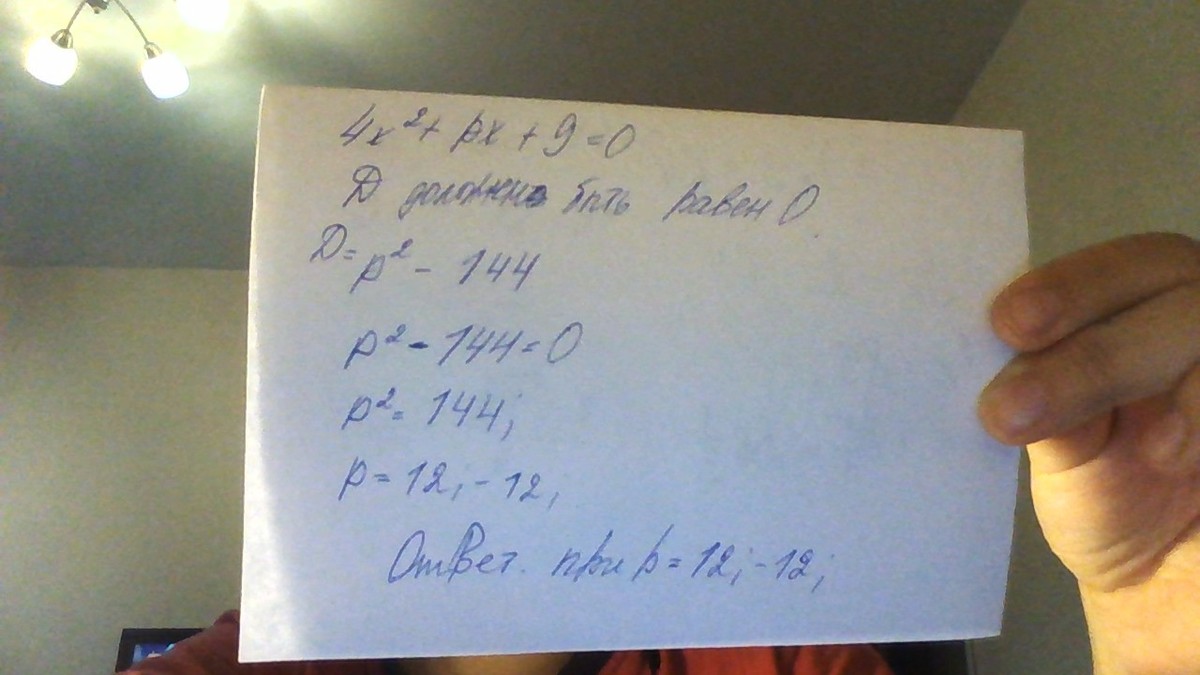 4x² + px + 9 = 0
D должно быть равен 0.
D = p² - 144
p² - 144 = 0
p² = 144;
p = 12; - 12;
Ответ. при p = 12; - 12;